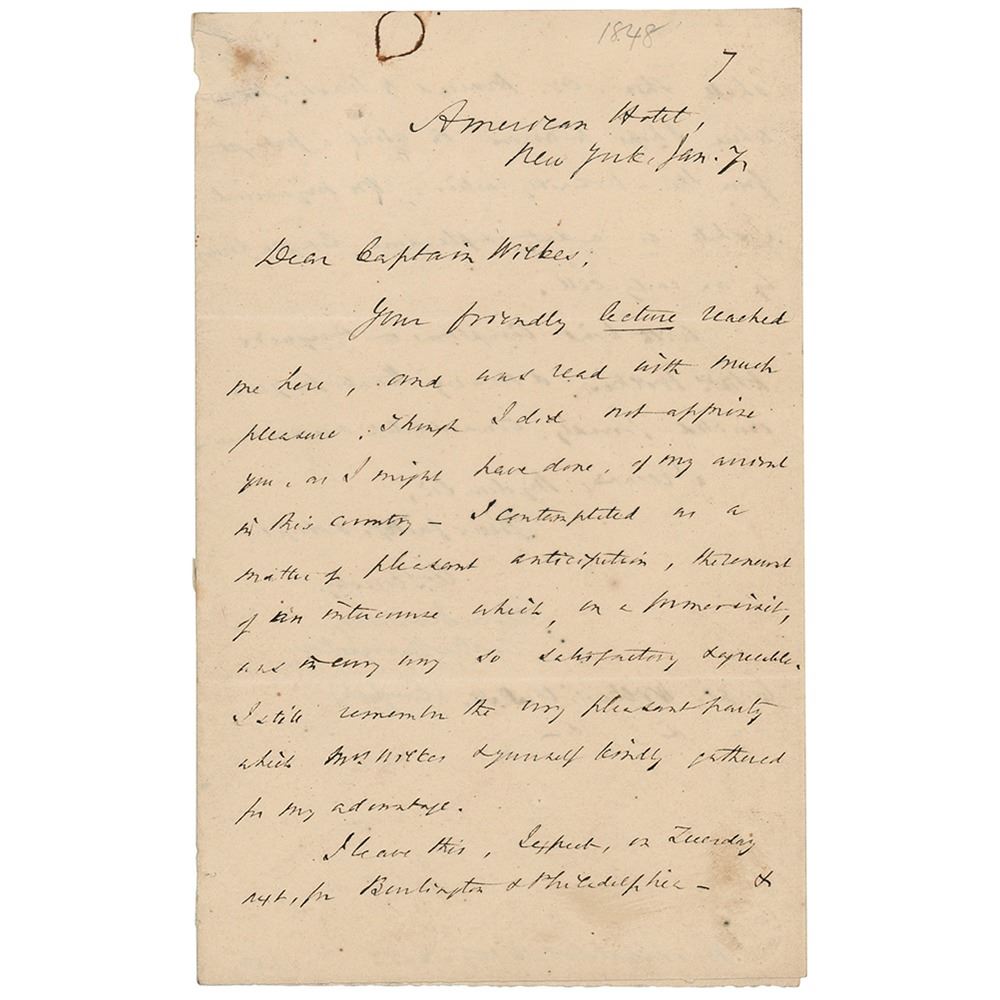 1848
7
American Hotel,
New York, Jan. 7,
Dear Captain Wilkes,
Your friendly lecture reached
me here, and was read with much
pleasure. Though I did not apprise
you, as I might have done, of my arrival
in this country – I contemplated as a
matter of pleasant anticipation, the renewal
of an intercourse which, on a former visit,
was in every way so satisfactory & agreeable.
I still remember the very pleasant party
which Mrs Wilkes & yourself kindly gathered
for my advantage.
I leave this, I expect, on Tuesday
next, for Burlington & Philadelphia – &